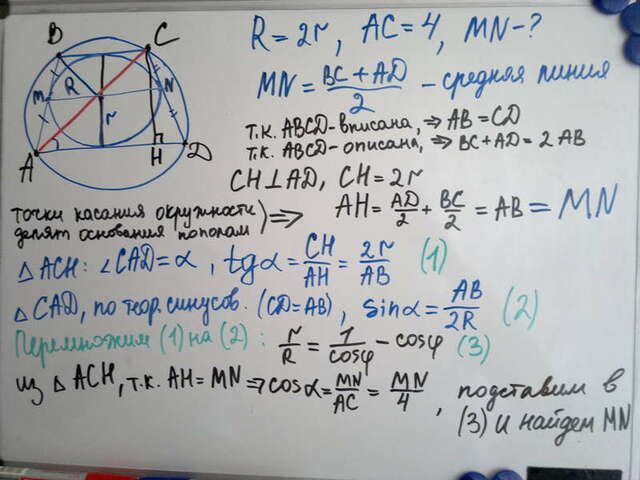 R = 2r, AC = 4, MN - ?
MN = (BC + AD)/2 - средняя линия
т.к. ABCD - вписана, ⇒ AB = CD
т.к. ABCD - описана, ⇒ BC + AD = 2 AB
CH ⊥ AD, CH = 2r
точки касания окружности делят основания пополам) ⇒ AH = AD/2 + BC/2 = AB = MN
△ ACH: ∠CAD = α, tgα = CH/AH = 2r/AB (1)
△ CAD, по теор. синусов. (CD = AB), sinα = AB/2R (2)
Перемножим (1) на (2): r/R = 1/cosφ - cosφ (3)
из △ ACH, т.к. AH = MN ⇒ cosα = MN/AC = MN/4, подставим в (3) и найдем MN
B
C
R
M
N
r
A
H
D